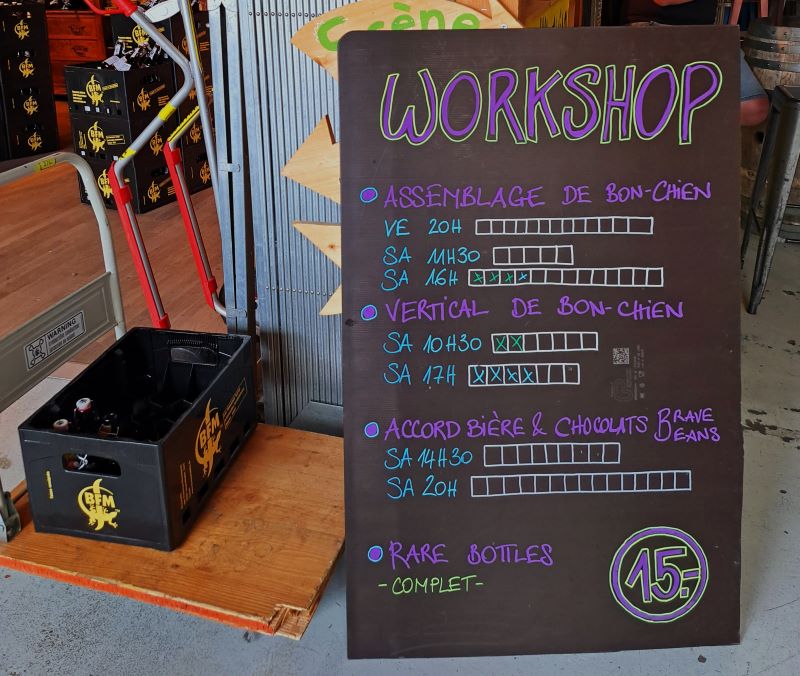 Scène
WORKSHOP
ASSEMBLAGE DE BON-CHIEN
VE 20H
SA 11H30
SA 16H
VERTICAL DE BON-CHIEN
SA 10H30
SA 17H
ACCORD BIÈRE & CHOCOLATS BRAVE BEANS
SA 14H30
SA 20H
RARE BOTTLES
-COMPLET-
15.-
WARNING
BFM
BFM
BFM